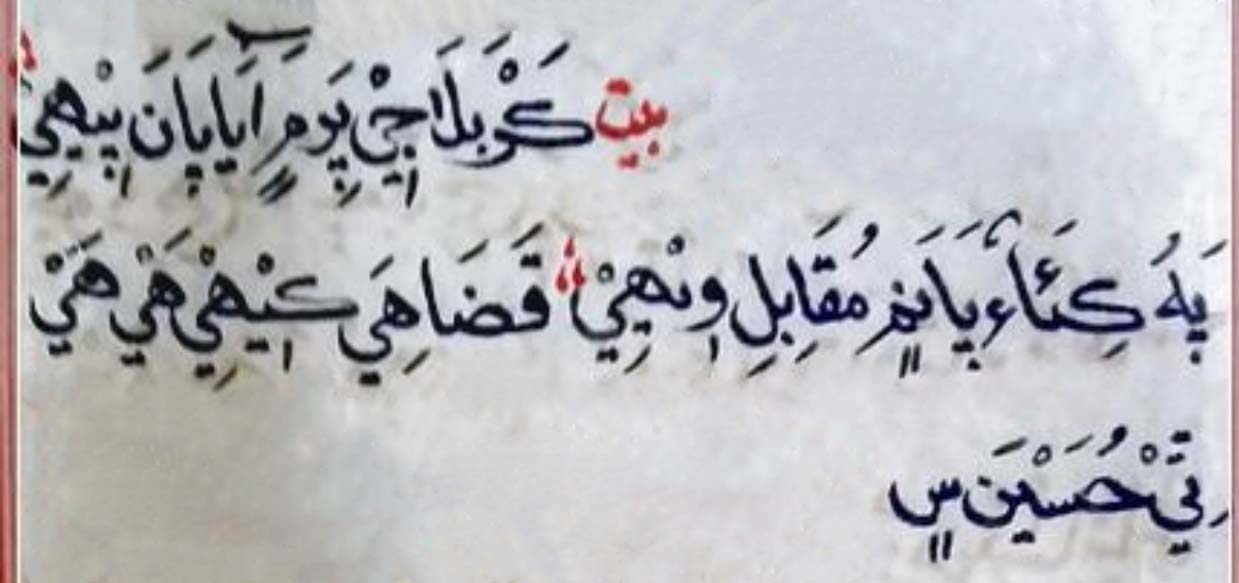 بيت كَرْبَلَا جِيْ پَوِمٍ آيَا پَانَ پِنْهِيْ
پَہُ كِئَاءُ مُقَابِلِ وِنْهِيْ قَضَا هِيَ كِنْهِيْ هَيْ هَيْ
تِيْ حُسَيْنَ سٍ